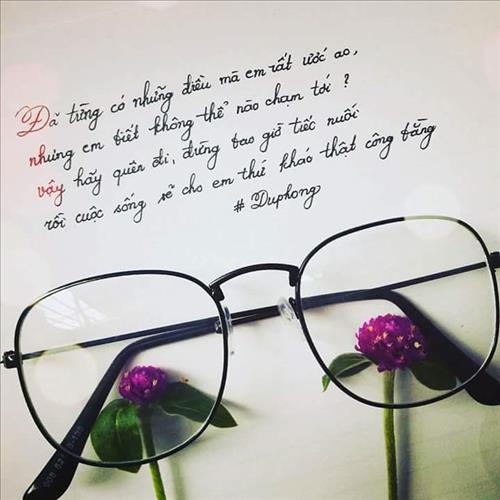 Đã từng có những điều mà em rất ước ao,
nhưng em biết không thể nào chạm tới ?
vậy hãy quên đi, đừng bao giờ tiếc nuối
rồi cuộc sống sẽ cho em thứ khác thật công bằng
# Duphong